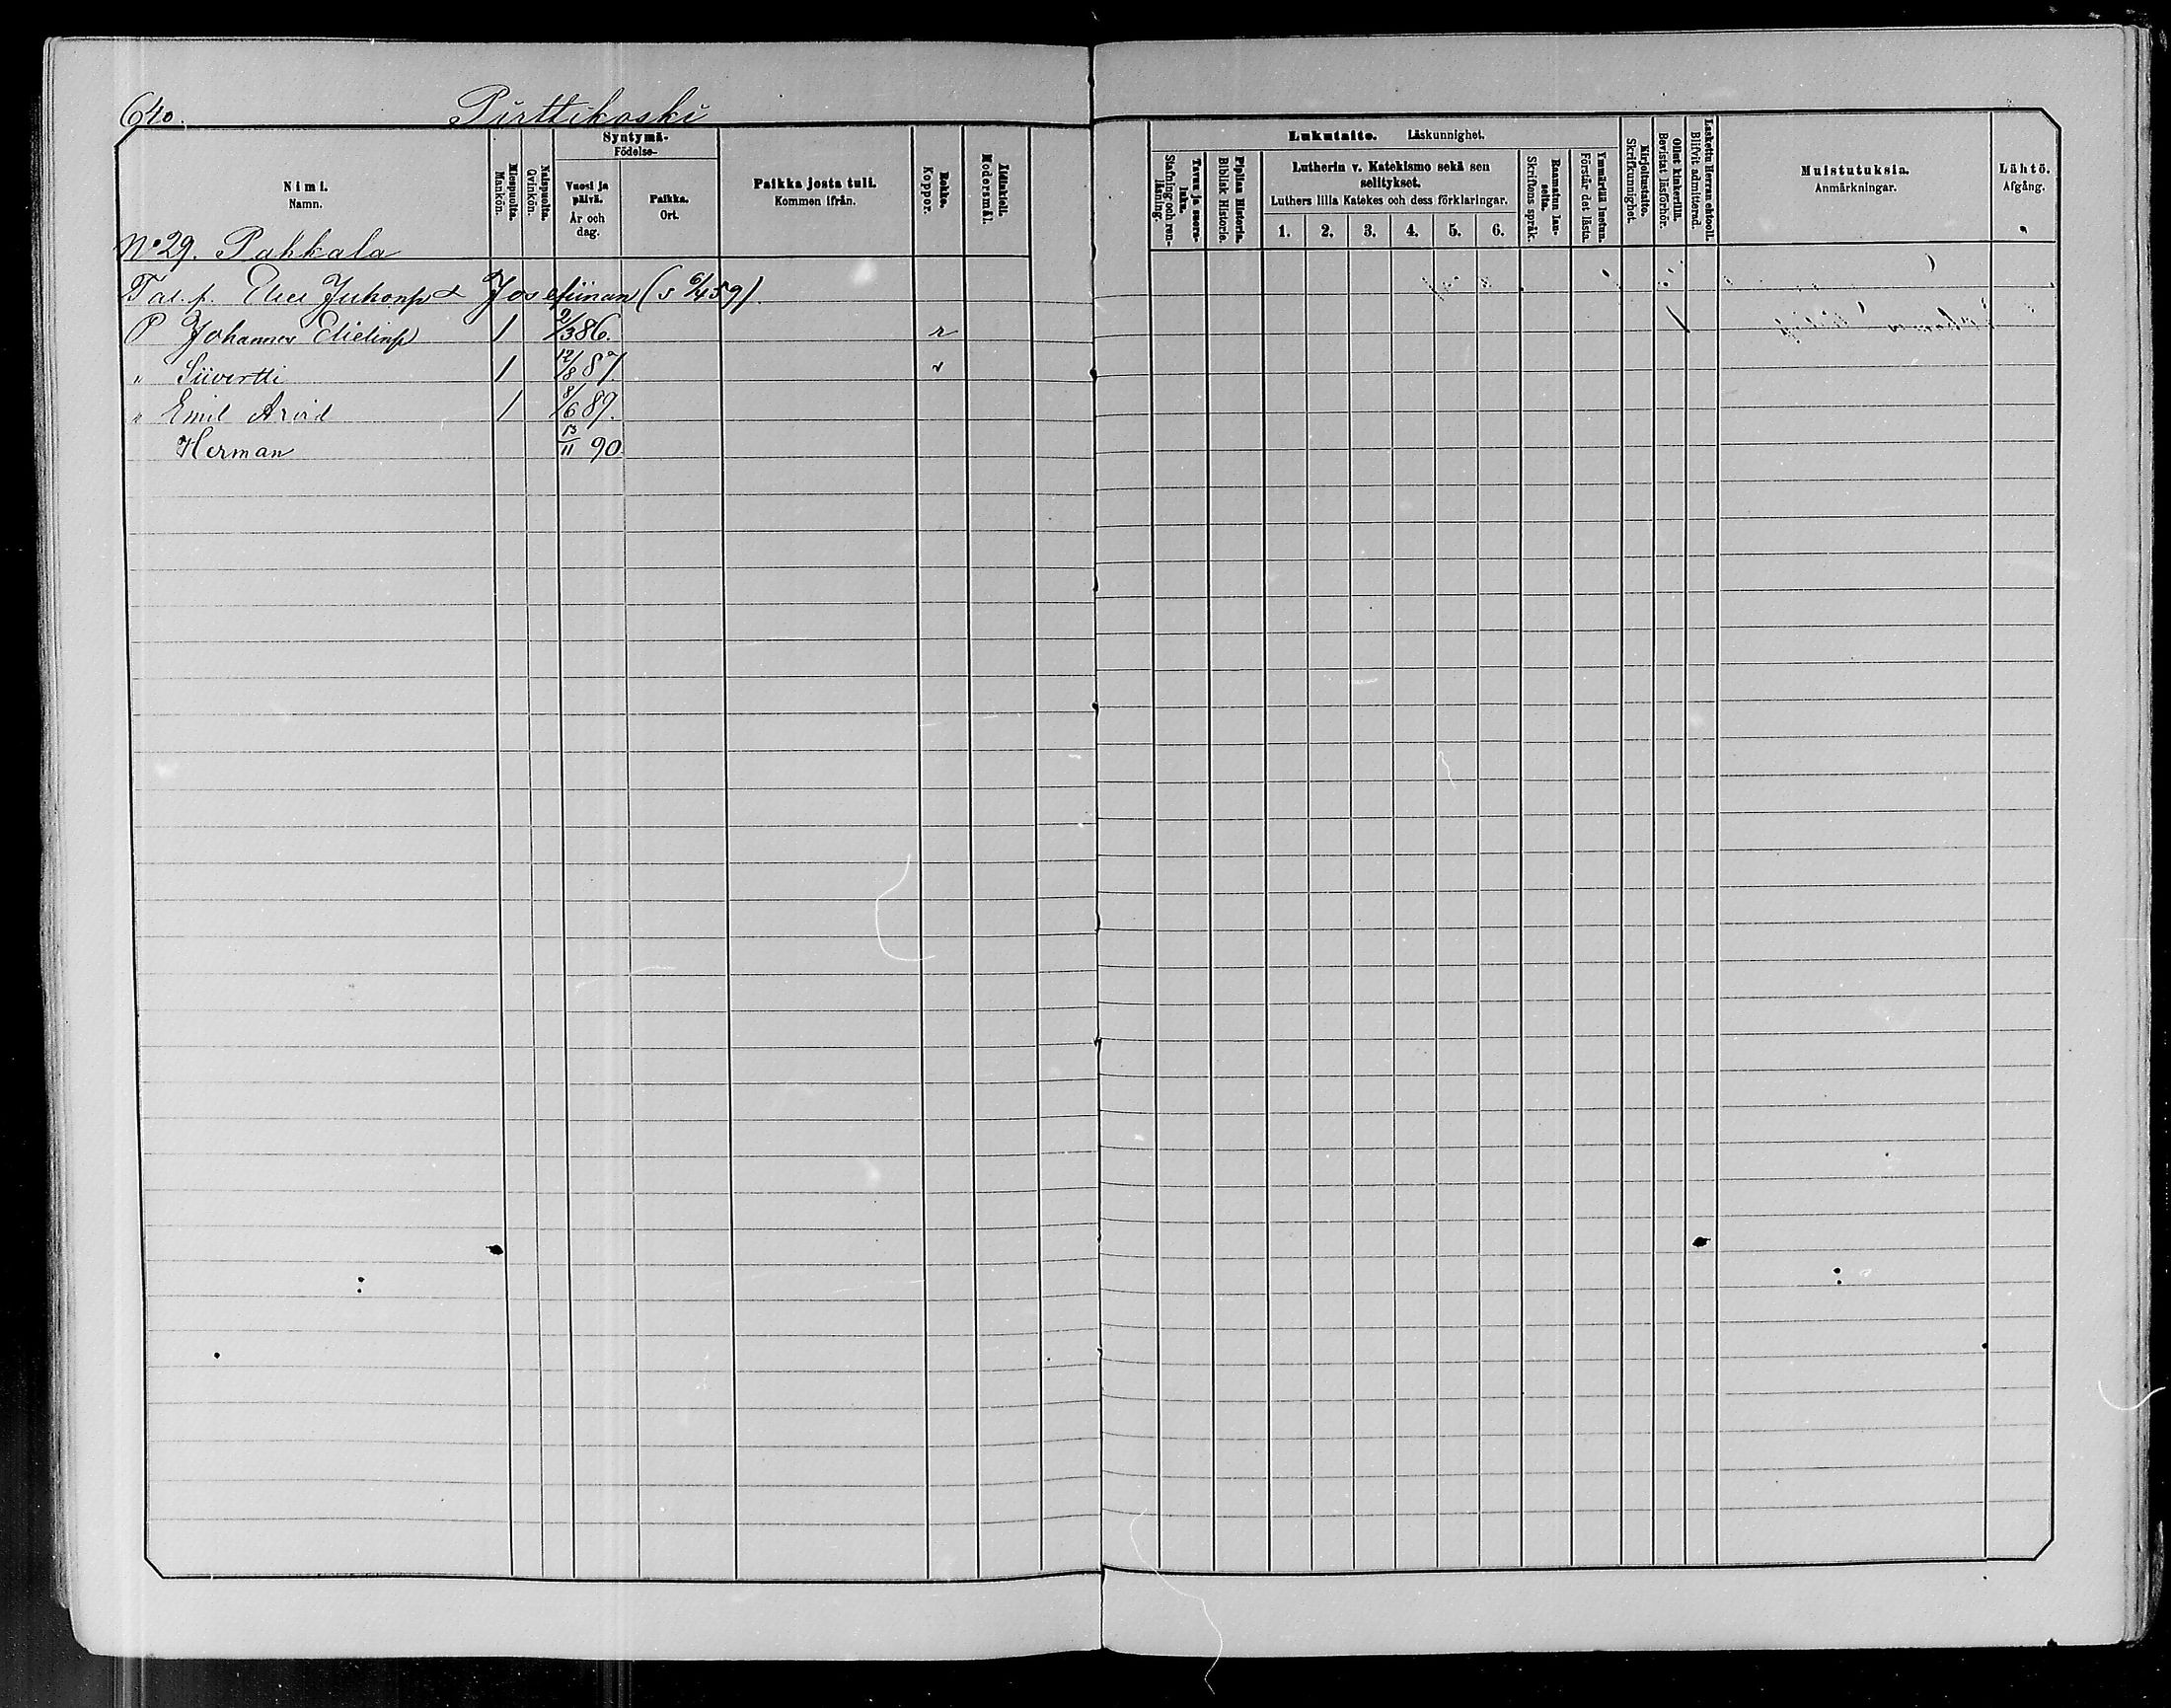 640. Pirttikoski
Nimi. Namn.
Miespuolta. Mankön.
Naispuolta. Qvinkön.
Syntymä- Födelse-
Vuosi ja päivä. År och dag.
Paikka. Ort.
Paikka josta tuli. Kommen ifrån.
Rokko. Koppor.
Äidinkieli. Modersmål.
Lukutaito. Läskunnighet.
Tavuu ja suora- luku. Stafning och ren- läsning.
Piplian Historia. Biblisk Historie.
Lutherin v. Katekismo sekä sen selitykset.
Luthers lilla Katekes och dess förklaringar.
1. 2. 3. 4. 5. 6.
Raamatun lau- seita. Skriftens språk.
Ymmärtää luetun. Förstår det lästa.
Kirjoitustaito. Skrifkunnighet.
Ollut kinkerillä. Bevistat läsförhör.
Laskettu Herran ehtooll. Blifvit admitterad.
Muistutuksia. Anmärkningar.
Lähtö. Afgång.
No 29. Pahkala
Tal. p. Josefiinan (s 459).
P Johannes Elielinp 1 2/3 86. r
" Siivertti 1 12/8 87. v
" Emil Arvid 1 8/6 89.
Herman 13/11 90